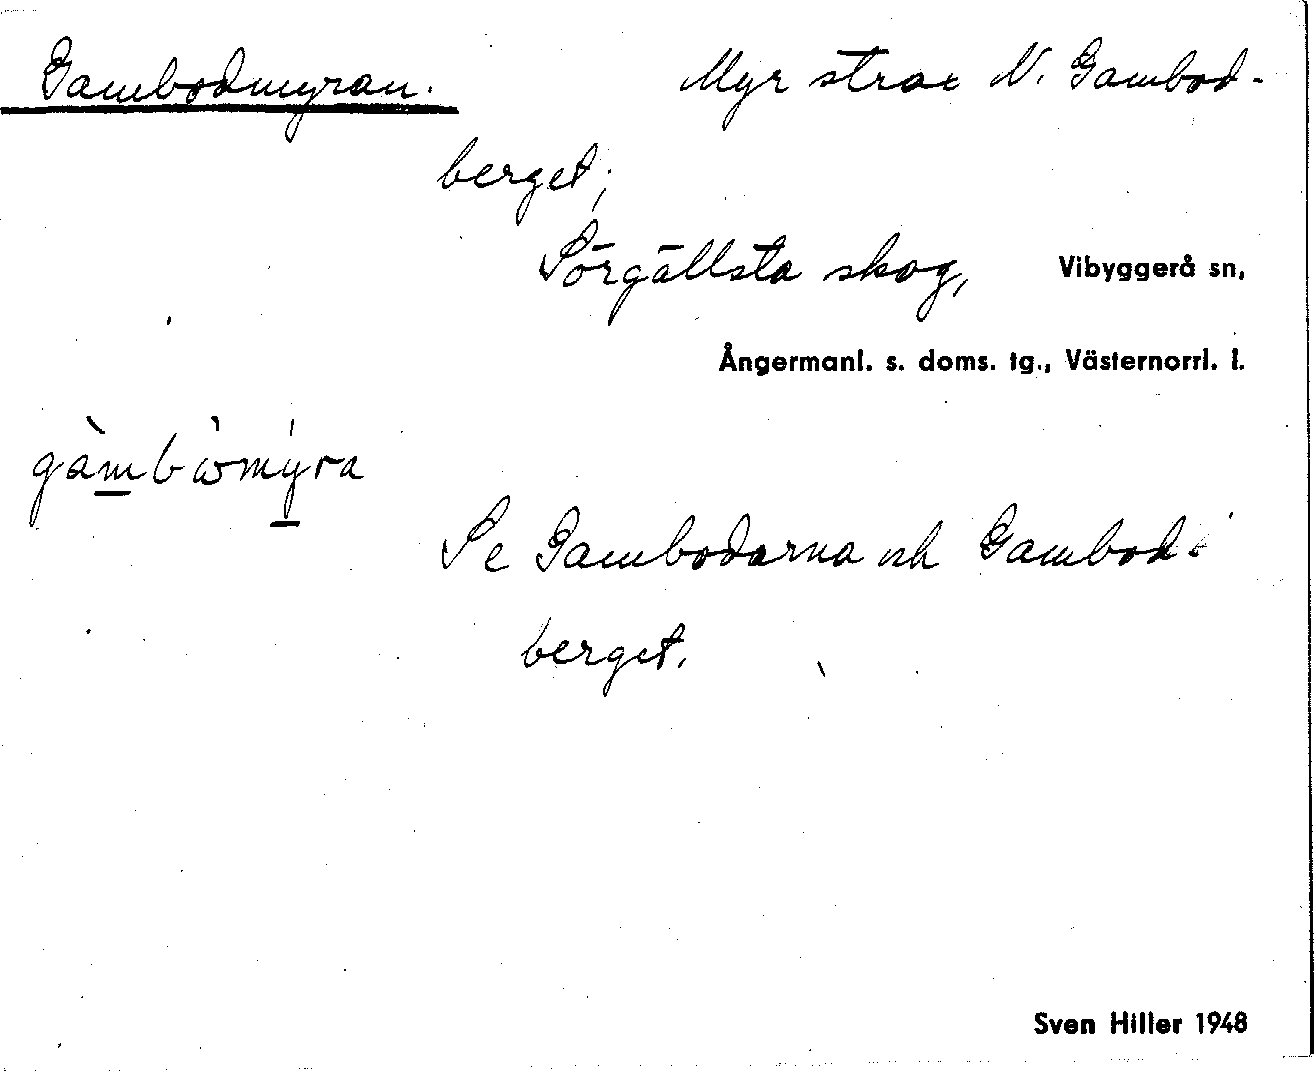 Gambodmyran. Myr strax N. Gambod-
berget;
Sörgällsta skog, Vibyggerå sn,
Ångermanl. s. doms. tg., Västernorrl. l.
gàmbòmýra
Se Gambodarna och Gambod-
berget.
Sven Hiller 1948